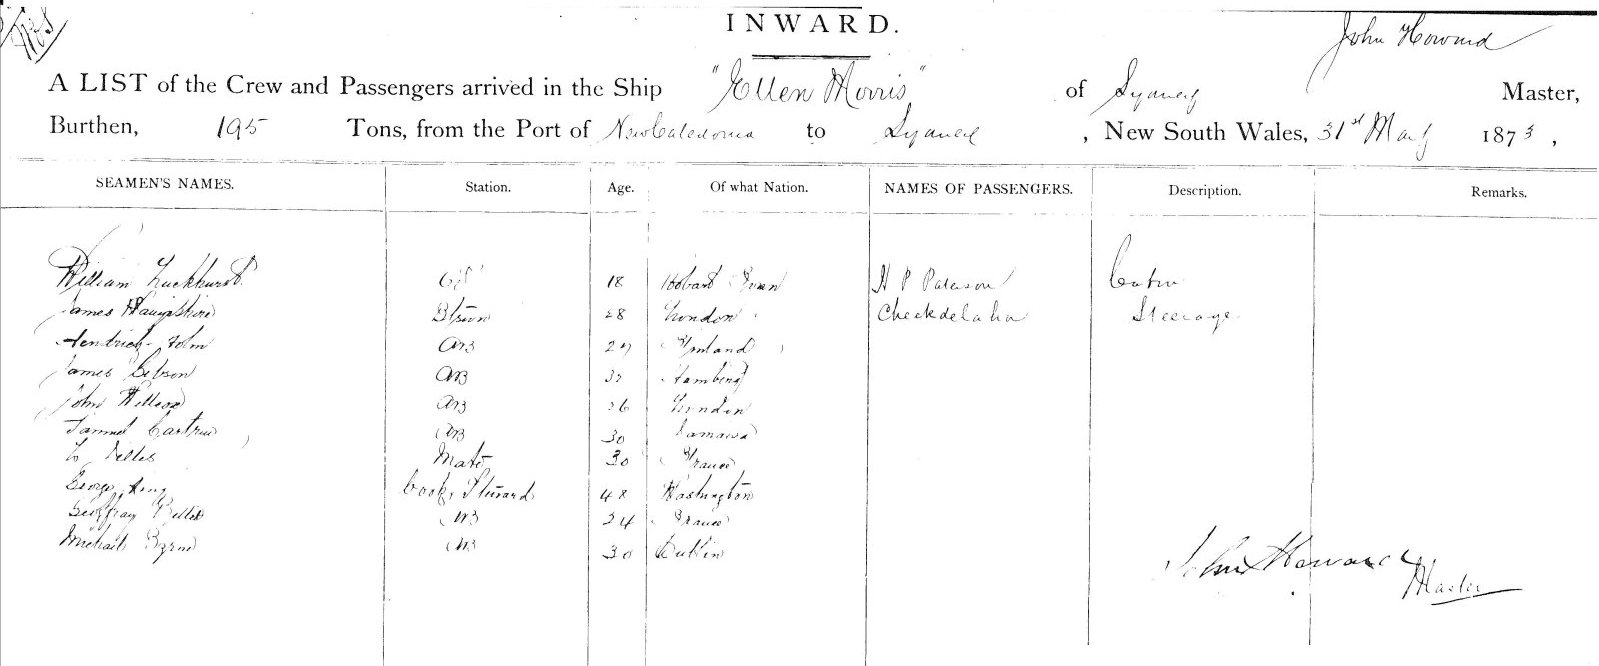 INWARD.
John Howard
A LIST of the Crew and Passengers arrived in the Ship "Ellen Morris" of Sydney Master,
Burthen, 195 Tons, from the Port of New Caledonia to Sydney , New South Wales, 31st May 1873 ,
SEAMEN'S NAMES. Station. Age. Of what Nation. NAMES OF PASSENGERS. Description. Remarks.
William Luckhurst 18 Hobart Town H P Paterson Cabin
James Hampshire 28 London Checkdelaha Steerage
Holm AB Finland
James Gibson AB
John AB 26 London
Samuel AB 30 Jamaica
Mate 30 France
George King Cook, Steward 48 Washington
Geoffray AB 24 France
Michail Byrne AB 30 Dublin
John Howard
Master